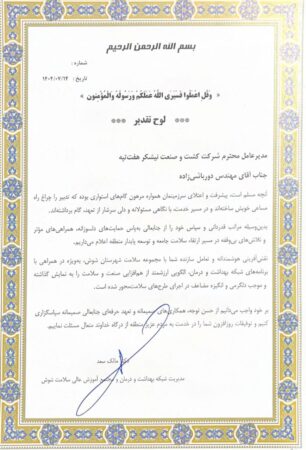 بسم الله الرحمن الرحیم
شماره :
تاریخ : ۱۴۰۴/۰۷/۲۴
« وَقُلِ اعْمَلُوا فَسَيَرَى اللَّهُ عَمَلَكُمْ وَرَسُولُهُ وَالْمُؤْمِنُونَ »
*** لوح تقدیر ***
مدیرعامل محترم شرکت کشت و صنعت نیشکر هفت‌تپه
جناب آقای مهندس دورباتش‌زاده
آنچه مسلم است، پیشرفت و اعتلای سرزمینمان همواره مرهون گام‌های استواری بوده که تدبیر را چراغ راه
مساعی خویش ساخته‌اند و در مسیر خدمت، با نگاهی مسئولانه و دلی سرشار از تعهد، گام برداشته‌اند.
بدین‌وسیله مراتب قدردانی و سپاس خود را از جنابعالی به‌پاس حمایت‌های دلسوزانه، همراهی‌های مؤثر
و تلاش‌های بی‌وقفه در مسیر ارتقاء سلامت جامعه و توسعه پایدار منطقه اعلام می‌داریم.
نقش‌آفرینی هوشمندانه و تعامل سازنده شما با مجموعه سلامت شهرستان شوش، به‌ویژه در همراهی با
برنامه‌های شبکه بهداشت و درمان، الگویی ارزشمند از هم‌افزایی صنعت و سلامت را به نمایش گذاشته
و موجب دلگرمی و انگیزه مضاعف در اجرای طرح‌های سلامت‌محور شده است.
بر خود واجب می‌دانیم از حسن توجه، همکاری‌های صمیمانه و تعهد حرفه‌ای جنابعالی صمیمانه سپاسگزاری
کنیم و توفیقات روزافزون شما را در خدمت به مردم عزیز منطقه از درگاه خداوند متعال مسئلت نماییم.
دکتر مالک سعد
مدیریت شبکه بهداشت و درمان و مجتمع آموزش عالی سلامت شوش